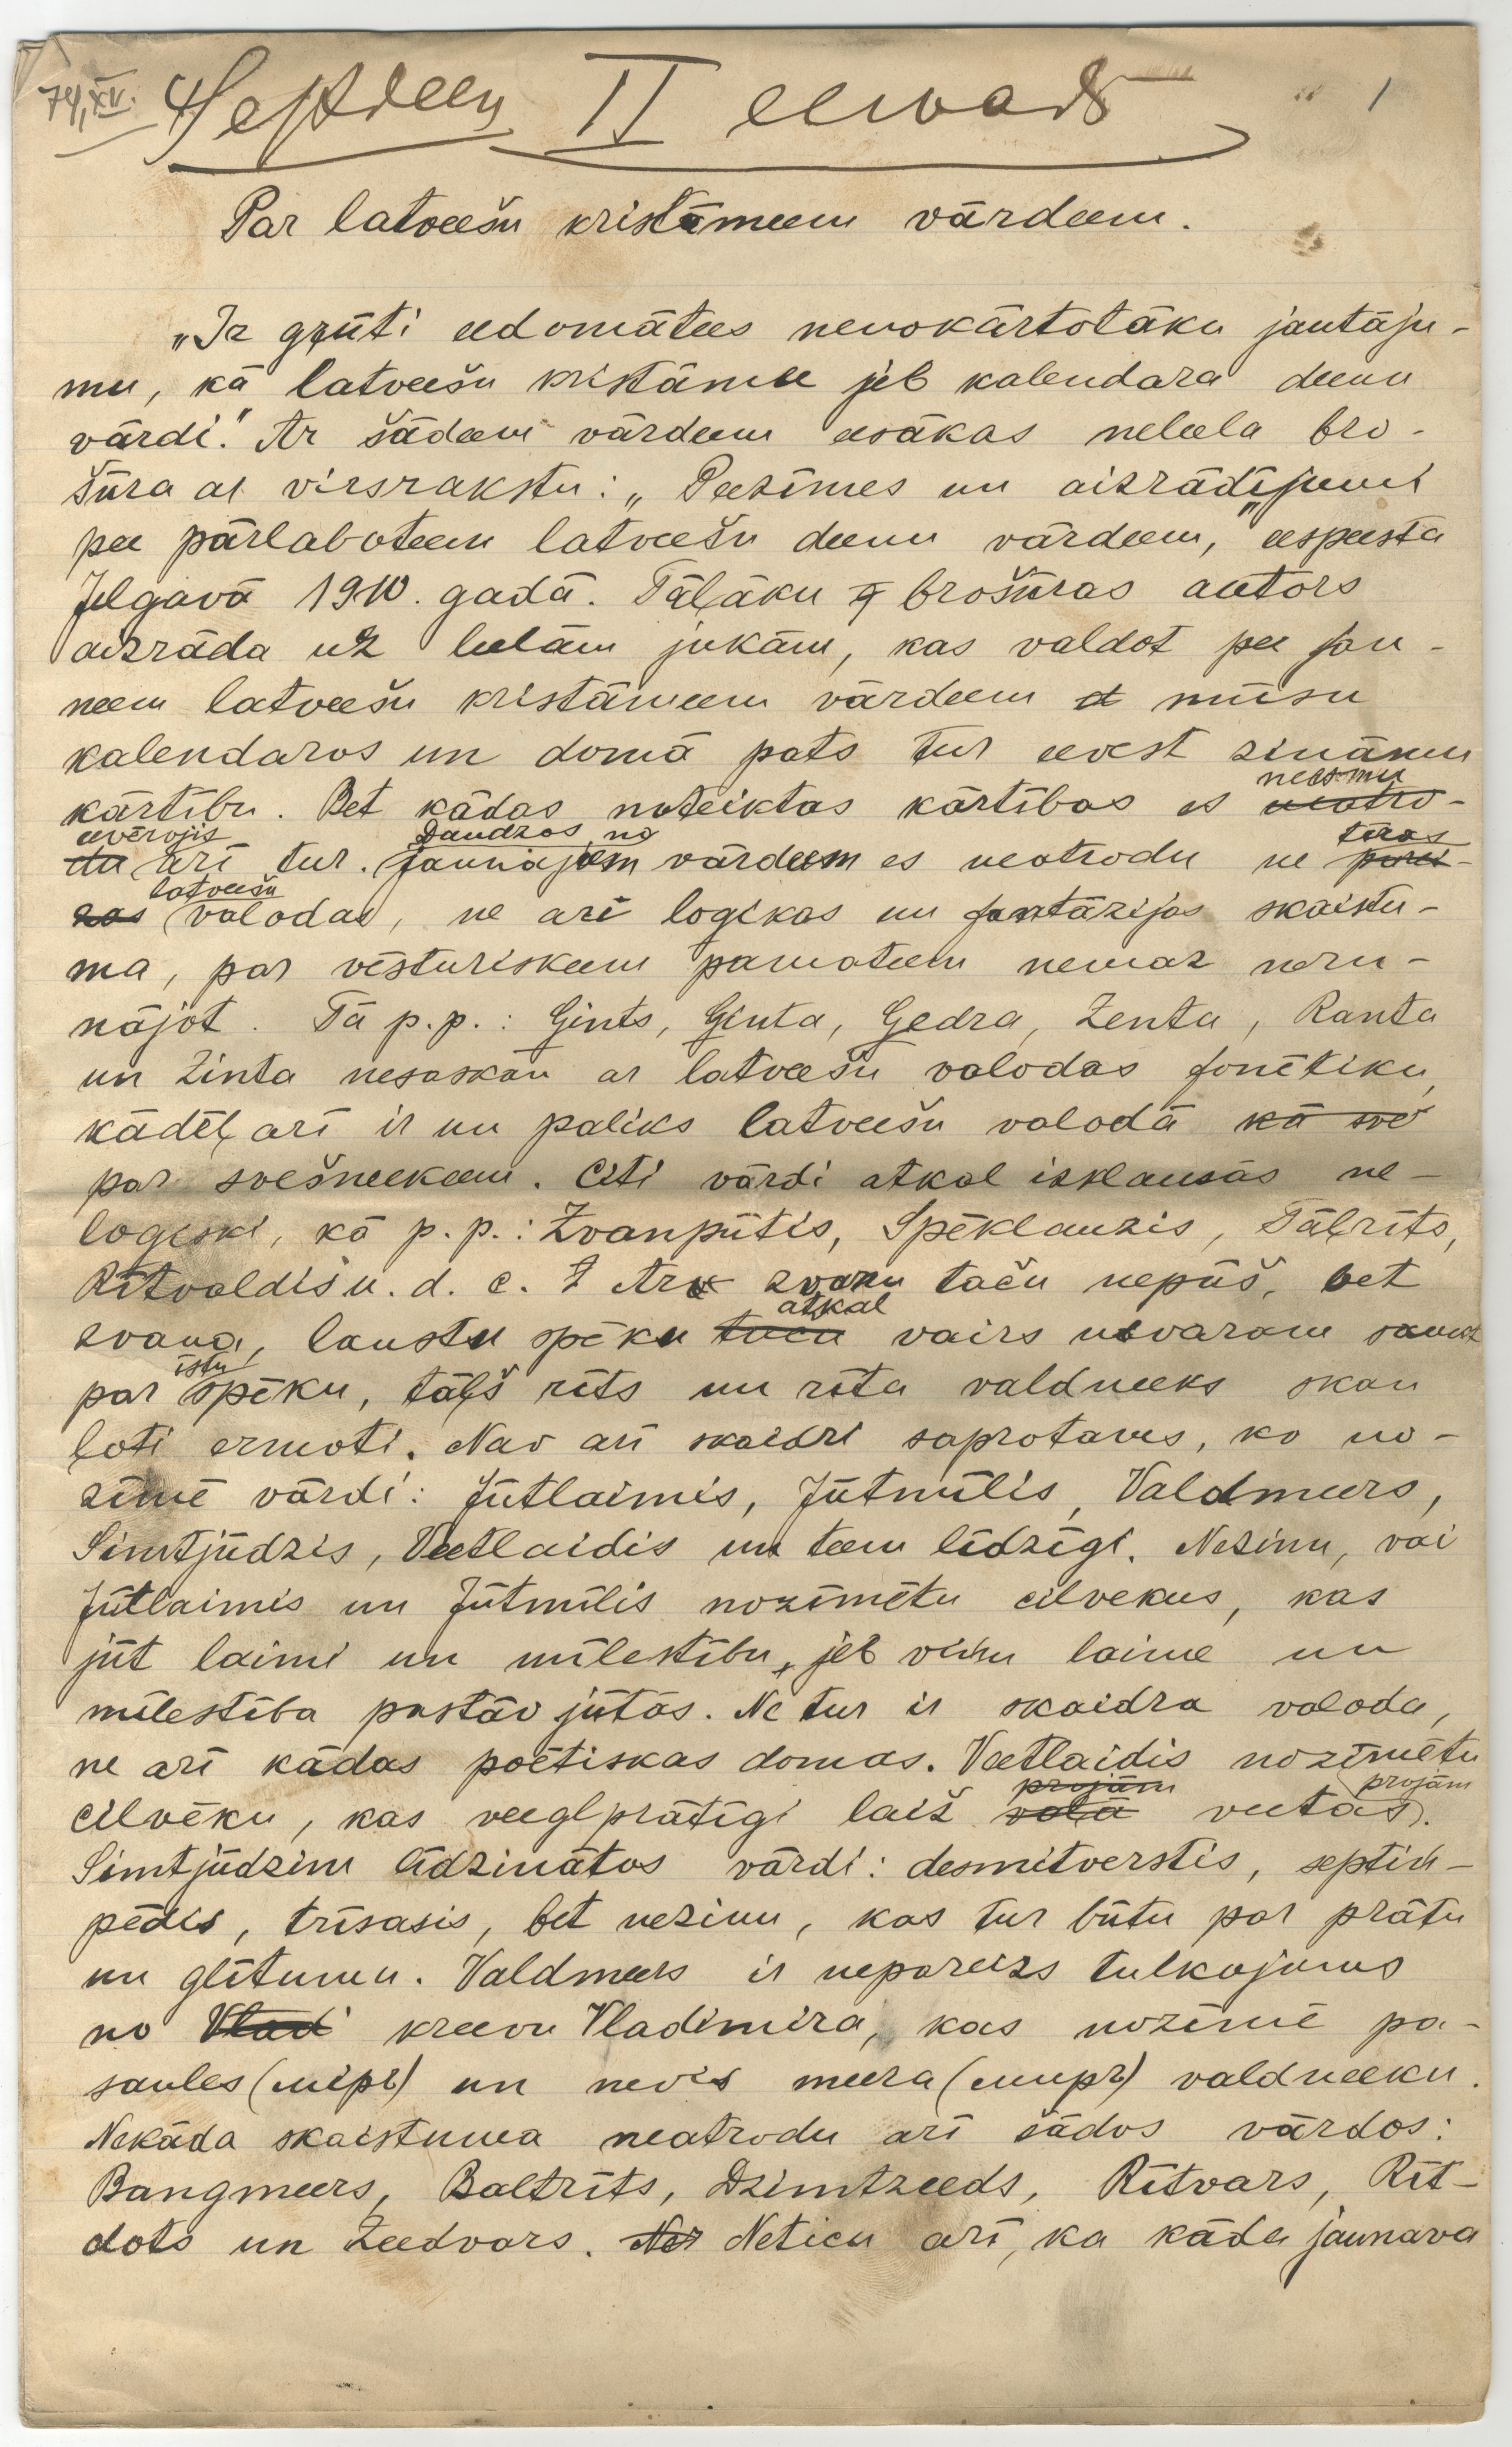 74, XV. II eewads 1
Par latveešu kristāmeem vārdeem.
„Ir grūti eedomātees nenokārtotāku jautāju-
mu, kā latveešu kristāmee jeb kalendara deenu
vārdi." Ar šādeem vārdeem eesākas neleela bro-
šūra ar virsrakstu: „Peezīmes un aizrādījumi
pee pārlaboteem latveešu deenu vārdeem," eespeesta
Jelgavā 1910. gadā. Tāļāku brošūras autors
aizrāda uz leelām jukām, kas valdot pee jau-
neem latveešu kristāmeem vārdeem mūsu
kalendaros un domā pats tur eevest zināmu
kārtību. Bet kādas noteiktas kārtības es neesmu neatro-
eevērojis du arī tur. Daudzos no jaunajeem vārdeem es neatrodu ne tīras parei-
zas latveešu valodas, ne arī logikas un fantāzijas skaistu-
ma, par vēsturiskeem pamateem nemaz neru-
nājot. Tā p.p.: Gints, Ginta, Gedra, Zenta, Ranta
un Zinta nesaskan ar latveešu valodas fonētiku,
kādēļ arī ir un paliks latveešu valodā kā sve
par svešneekeem. Citi vārdi atkal izklausās ne-
loģiski, kā p.p.: Zvanpūtis, Spēklauzis, Tāļrīts,
Rītvaldis u.d.c. Ar zvanu taču nepūš, bet
zvana, lauztu spēku taču atkal vairs nevaram saukt
par īstu spēku, tāļš rīts un rīta valdneeks skan
ļoti ermoti. Nav arī skaidri saprotams, ko no-
zīmē vārdi: Jūtlaimis, Jūtmīlis, Valdmeers,
Simtjūdzis, Veetlaidis un teem līdzīgi. Nezinu, vai
Jūtlaimis un Jūtmīlis nozīmētu cilvekus, kas
jūt laimi un mīlestību, jeb viņu laime un
mīlestība pastāv jūtās. Ne tur ir skaidra valoda,
ne arī kādas poētiskas domas. Veetlaidis nozīmētu
cilvēku, kas veeglprātīgi laiž projām vaļā veetas projām.
Simtjūdzim līdzinātos vārdi: desmitverstis, septiņ-
pēdis, trīsasis, bet nezinu, kas tur būtu par prātu
un glītumu. Valdmeers ir nepareizs tulkojums
no Vladi kreevu Vladimira, kas nozīmē pa-
saules (міръ) un nevis meera (миръ) valdneeku.
Nekāda skaistuma neatrodu arī šādos vārdos:
Bangmeers, Baltrīts, Dzimtzeeds, Rītvars, Rīt-
dots un Zeedvars. Ne Neticu arī, ka kāda jaunava